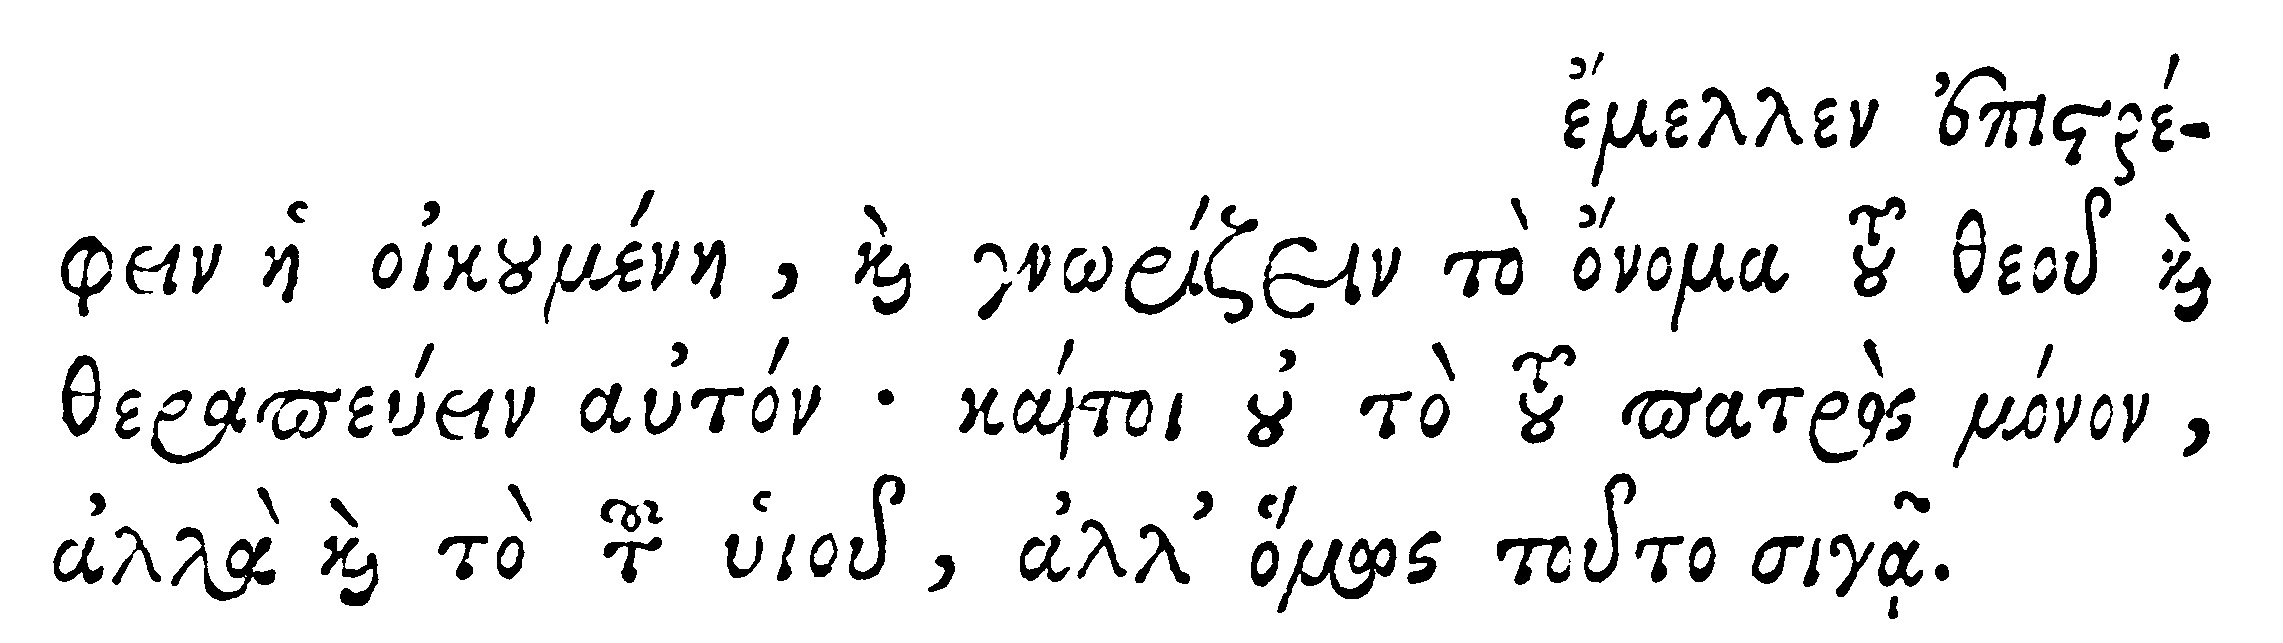 ἔμελλεν ἐπιστρέ-
φειν ἡ οἰκουμένη, καὶ γνωρίζειν τὸ ὄνομα τοῦ θεοῦ καὶ
θεραπεύειν αὐτόν · καίτοι οὐ τὸ τοῦ πατρὸς μόνον,
ἀλλὰ καὶ τὸ τοῦ ὑιοῦ, ἀλλ’ ὅμως τοῦτο σιγᾷ.